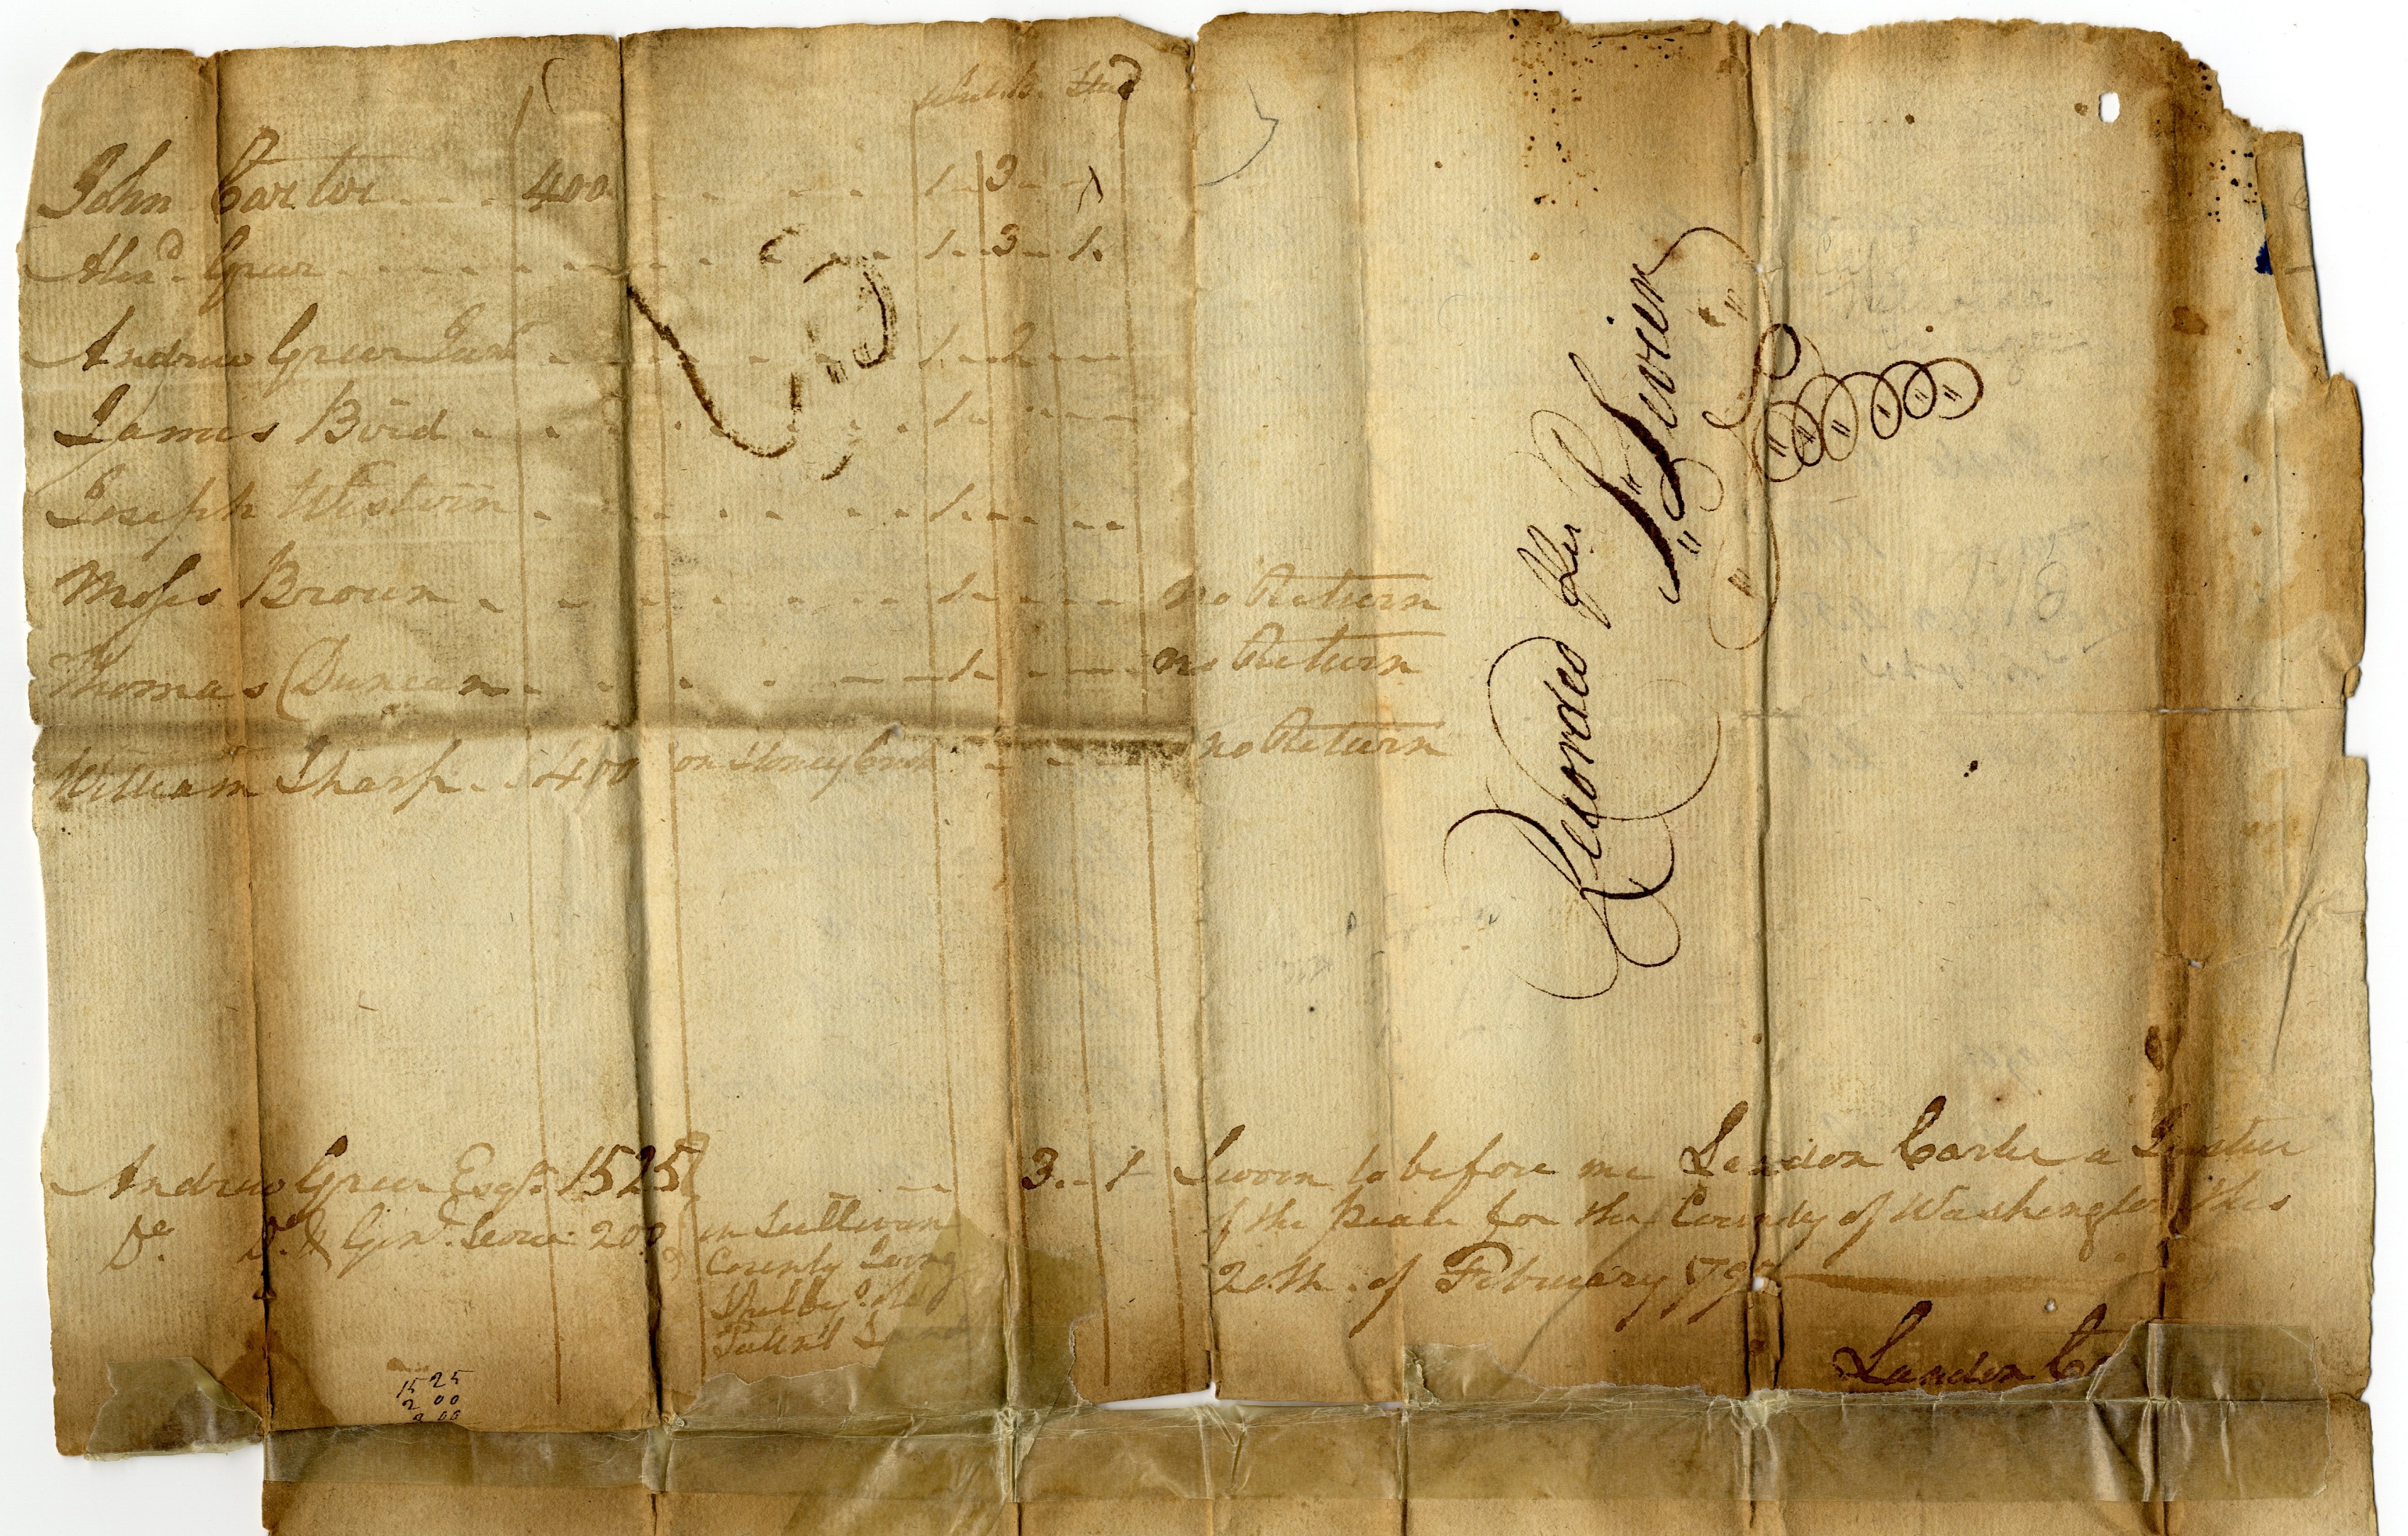 John Carter - - - 400 - - - - - 1 - 3 - 1
Alexd. Greer - - - - - - - - - - 1 - 3 - 1.
Andrew Greer Junr - - - - - - - 1 - 2 - - -
James Boid - - - - - - - - 1 - - - -
Joseph Westorn - - - - - - - 1 - - - -
Moses Brown - - - - - - - 1 - - - - no Return
Thomas Duncan - - - - - - - 1 - - - - no Return
William Sharp - 400 on Stoney Creek - - - - no Return
Recorded Per Sevier
Andrew Greer Esqr. 1525 - - 3 - 1
Do. Do. & Genl. Sevier 200 in Sullivan
County Joing
Shelby's Old
Patent Land
1525
200
200
Sworn to before me Landon Carter a Justice
of the peace for the County of Washington this
20th. of February 179
Landon C